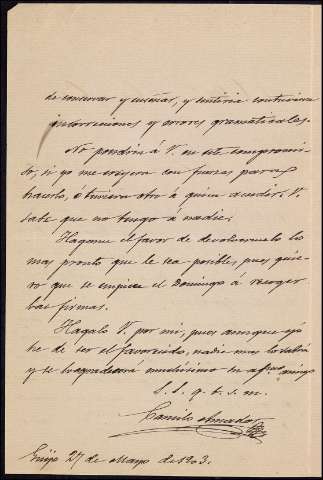 de conservar y enseñar, y sentiría contuviera
incorrecciones y errores gramaticales.
No pondría á V. en este compromi-
so, si yo me creyera con fuerzas para
hacerlo, ó tuviera otro á quien acudir; V.
sabe que no tengo á nadie.
Hagame el favor de devolvermelo lo
mas pronto que le sea posible, pues quie-
ro que se empiece el Domingo á recoger
las firmas.
Hagalo V. por mi, pues aunque
he de ser el favorecido, nadie mas lo sabrá
y se lo agradecerá muchísimo su afmo. amigo
S. S. q. b. s. m.
Camilo Amador
27 de Mayo de 1903.